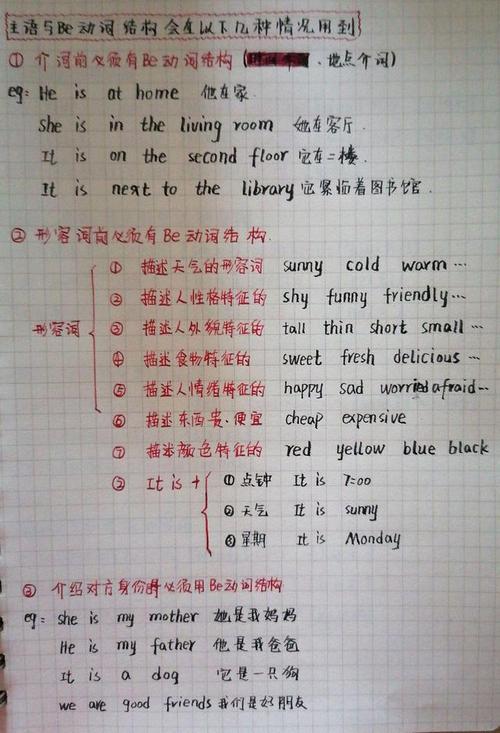 主语与Be动词结构会在以下几种情况用到
① 介词前必须有Be动词结构 ( 、地点介词)
eg: He is at home 他在家.
She is in the living room 她在客厅.
It is on the second floor 它在二楼.
It is next to the library 它紧临着图书馆.
② 形容词前必须有Be动词结构.
形容词
① 描述天气的形容词 sunny cold warm …
② 描述人性格特征的 shy funny friendly…
③ 描述人外貌特征的 tall thin short small …
④ 描述食物特征的 sweet fresh delicious …
⑤ 描述人情绪特征的 happy sad worried afraid…
⑥ 描述东西贵、便宜 cheap expensive
⑦ 描述颜色特征的 red yellow blue black
② It is + ① 点钟 It is 7:00
② 天气 It is sunny
③ 星期 It is Monday
③ 介绍对方身份时必须用Be动词结构
eg: she is my mother 她是我妈妈
He is my father 他是我爸爸
It is a dog 它是一只狗
we are good friends 我们是好朋友